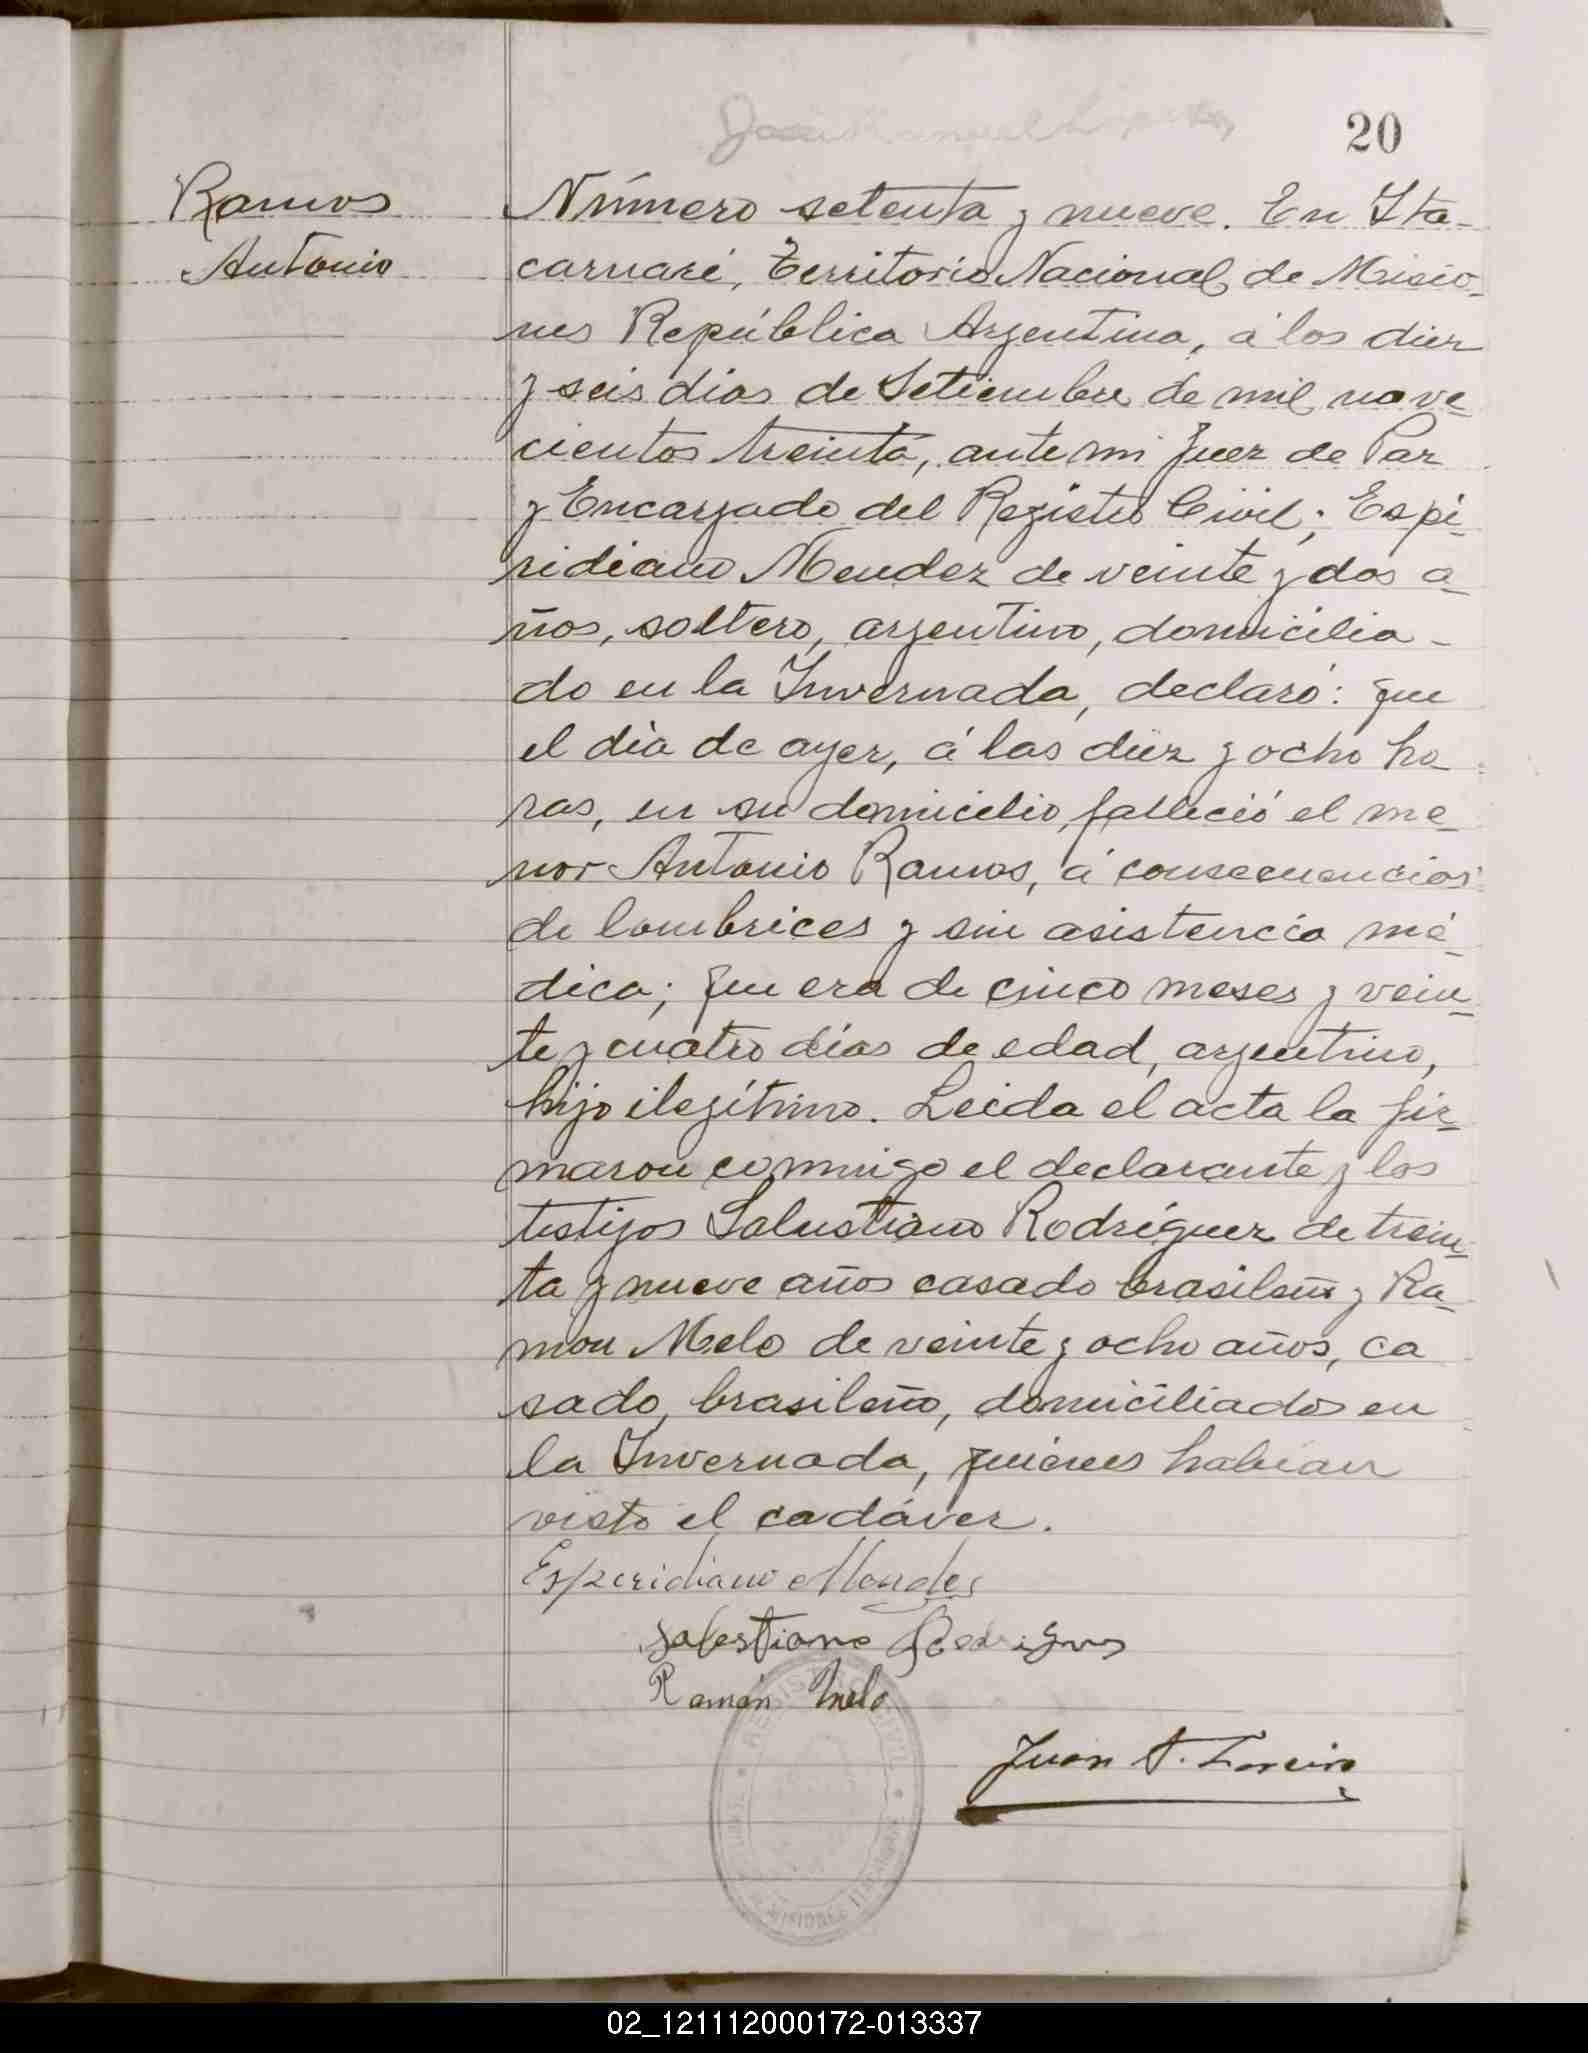 20
Ramos
Antonio
Número setenta y nueve. En Ita-
caruaré, Territorio Nacional de Misio-
nes República Argentina, á los diez
y seis dias de Setiembre de mil nove-
cientos treinta, ante mi Juez de Paz
y Encargado del Registro Civil; Espi-
ridiano Mendez de veinte y dos a-
ños, soltero, argentino, domicilia-
do en la Invernada, declaró: que
el dia de ayer, á las diez y ocho ho-
ras, en su domicilio, falleció el me-
nor Antonio Ramos, á consecuencias
de lombrices y sin asistencia mé-
dica; que era de cinco meses y vein-
te y cuatro dias de edad, argentino,
hijo ilegítimo. Leida el acta la fir-
maron conmigo el declarante y los
testigos Salustiano Rodríguez de trein-
ta y nueve años casado brasileño y Ra-
mon Melo de veinte y ocho años, ca
sado, brasileño, domiciliados en
la Invernada, quienes habian
visto el cadáver.
Esperidiano Mendes
Salestiano Rodrigues
Ramón Melo
REGISTRO CIVIL
MISIONES
Juan
02_121112000172-013337